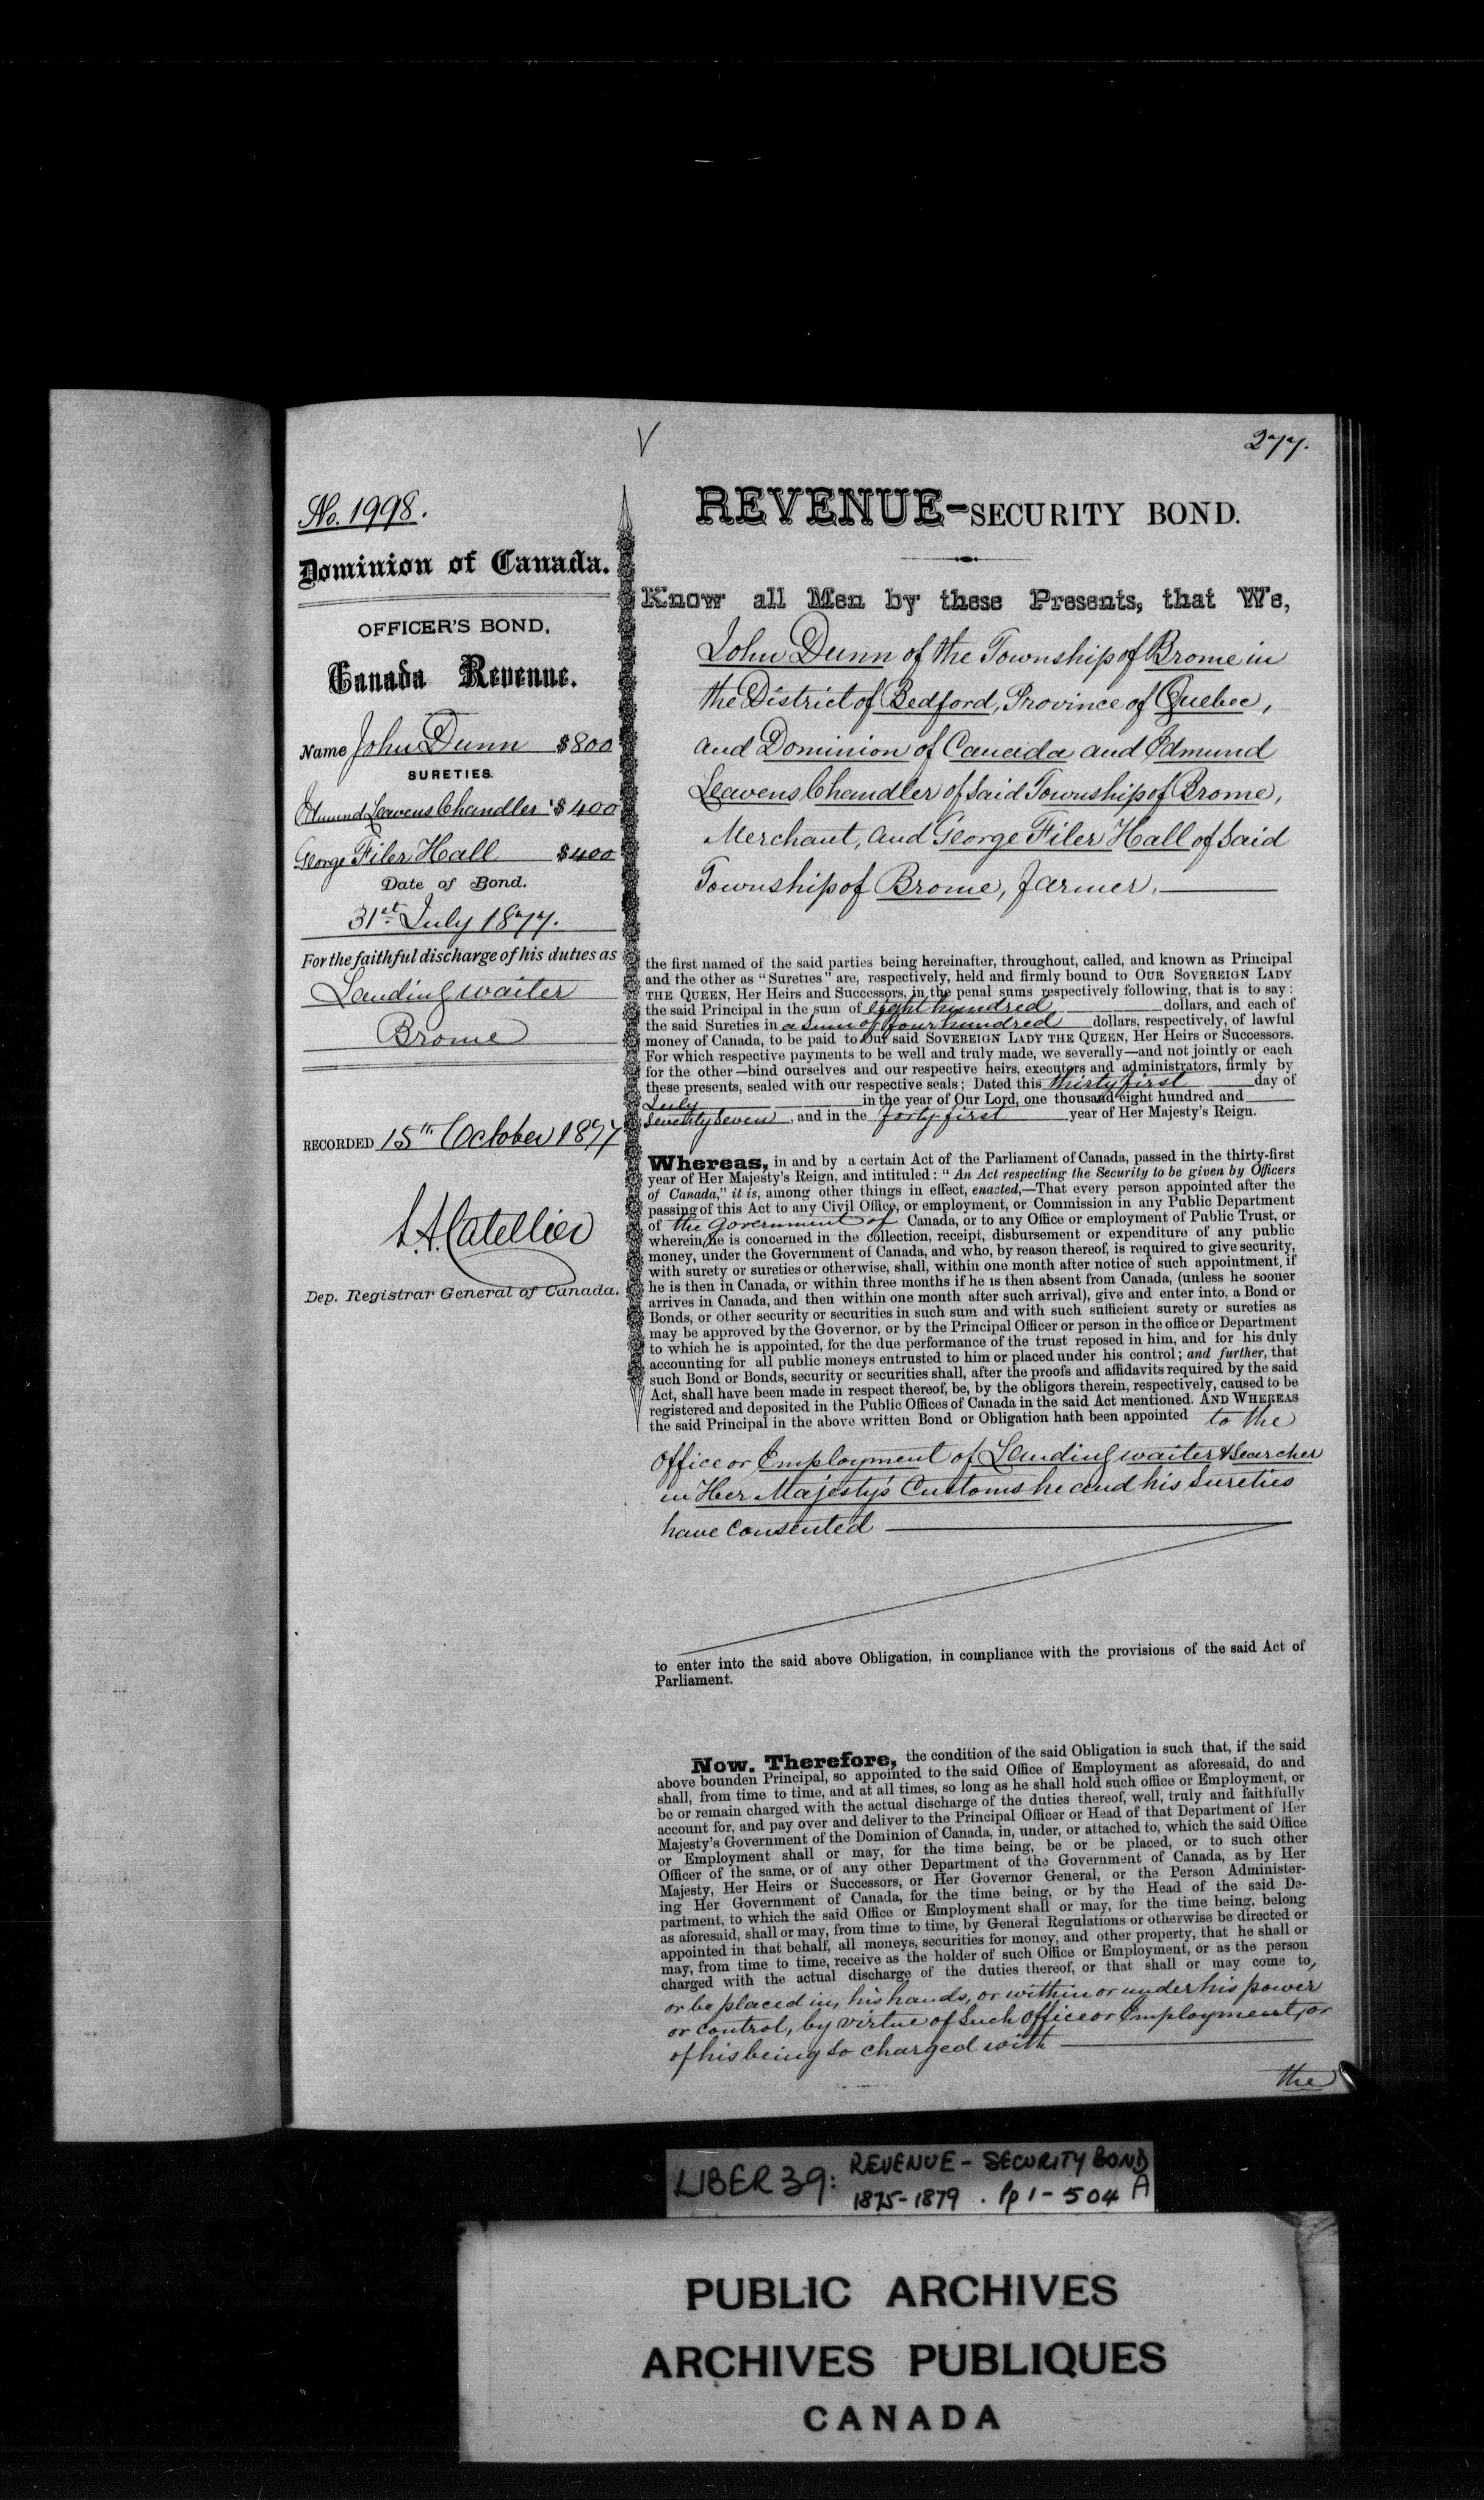 277.
No. 1998.
Dominion of Canada.
OFFICER'S BOND,
Canada Revenue.
Name John Dunn $800
SURETIES.
Edmund Leavens Chandler $400
George Filer Hall $400
Date of Bond.
31st July 1877.
For the faithful discharge of his duties as
Landing waiter
Brome
RECORDED 15th October 1877
L.A. Catellier
Dep. Registrar General of Canada.
REVENUE-SECURITY BOND.
Know all Men by these Presents, that We,
John Dunn of the Township of Brome in
the District of Bedford, Province of Quebec,
and Dominion of Canada and Edmund
Leavens Chandler of said Township of Brome,
Merchant, and George Filer Hall of said
Township of Brome, farmer.
the first named of the said parties being hereinafter, throughout, called, and known as Principal
and the other as "Sureties" are, respectively, held and firmly bound to OUR SOVEREIGN LADY
THE QUEEN, Her Heirs and Successors, in the penal sums respectively following, that is to say:
the said Principal in the sum of eight hundred dollars, and each of
the said Sureties in a sum of four hundred dollars, respectively, of lawful
money of Canada, to be paid to Our said SOVEREIGN LADY THE QUEEN, Her Heirs or Successors.
For which respective payments to be well and truly made, we severally—and not jointly or each
for the other—bind ourselves and our respective heirs, executors and administrators, firmly by
these presents, sealed with our respective seals; Dated this thirty first day of
July in the year of Our Lord, one thousand eight hundred and
seventy seven, and in the forty first year of Her Majesty's Reign.
Whereas, in and by a certain Act of the Parliament of Canada, passed in the thirty-first
year of Her Majesty's Reign, and intituled: "An Act respecting the Security to be given by Officers
of Canada," it is, among other things in effect, enacted,—That every person appointed after the
passing of this Act to any Civil Office, or employment, or Commission in any Public Department
of the Government of Canada, or to any Office or employment of Public Trust, or
wherein he is concerned in the collection, receipt, disbursement or expenditure of any public
money, under the Government of Canada, and who, by reason thereof, is required to give security,
with surety or sureties or otherwise, shall, within one month after notice of such appointment, if
he is then in Canada, or within three months if he is then absent from Canada, (unless he sooner
arrives in Canada, and then within one month after such arrival), give and enter into, a Bond or
Bonds, or other security or securities in such sum and with such sufficient surety or sureties as
may be approved by the Governor, or by the Principal Officer or person in the office or Department
to which he is appointed, for the due performance of the trust reposed in him, and for his duly
accounting for all public moneys entrusted to him or placed under his control; and further, that
such Bond or Bonds, security or securities shall, after the proofs and affidavits required by the said
Act, shall have been made in respect thereof, be, by the obligors therein, respectively, caused to be
registered and deposited in the Public Offices of Canada in the said Act mentioned. AND WHEREAS
the said Principal in the above written Bond or Obligation hath been appointed to the
office or Employment of Landing waiter & Searcher
in Her Majesty's Customs he and his Sureties
have consented
to enter into the said above Obligation, in compliance with the provisions of the said Act of
Parliament.
Now, Therefore, the condition of the said Obligation is such that, if the said
above bounden Principal, so appointed to the said Office of Employment as aforesaid, do and
shall, from time to time, and at all times, so long as he shall hold such office or Employment, or
be or remain charged with the actual discharge of the duties thereof, well, truly and faithfully
account for, and pay over and deliver to the Principal Officer or Head of that Department of Her
Majesty's Government of the Dominion of Canada, in, under, or attached to, which the said Office
or Employment shall or may, for the time being, be or be placed, or to such other
Officer of the same, or of any other Department of the Government of Canada, as by Her
Majesty, Her Heirs or Successors, or Her Governor General, or the Person Administer-
ing Her Government of Canada, for the time being, or by the Head of the said De-
partment, to which the said Office or Employment shall or may, for the time being, belong
as aforesaid, shall or may, from time to time, by General Regulations or otherwise be directed or
appointed in that behalf, all moneys, securities for money, and other property, that he shall or
may, from time to time, receive as the holder of such Office or Employment, or as the person
charged with the actual discharge of the duties thereof, or that shall or may come to,
or be placed in, his hands, or within or under his power
or control, by virtue of such office or Employment, or
of his being so charged with
the
LIBER 39: REVENUE - SECURITY BOND
1875-1879. Pp 1-504 A
PUBLIC ARCHIVES
ARCHIVES PUBLIQUES
CANADA